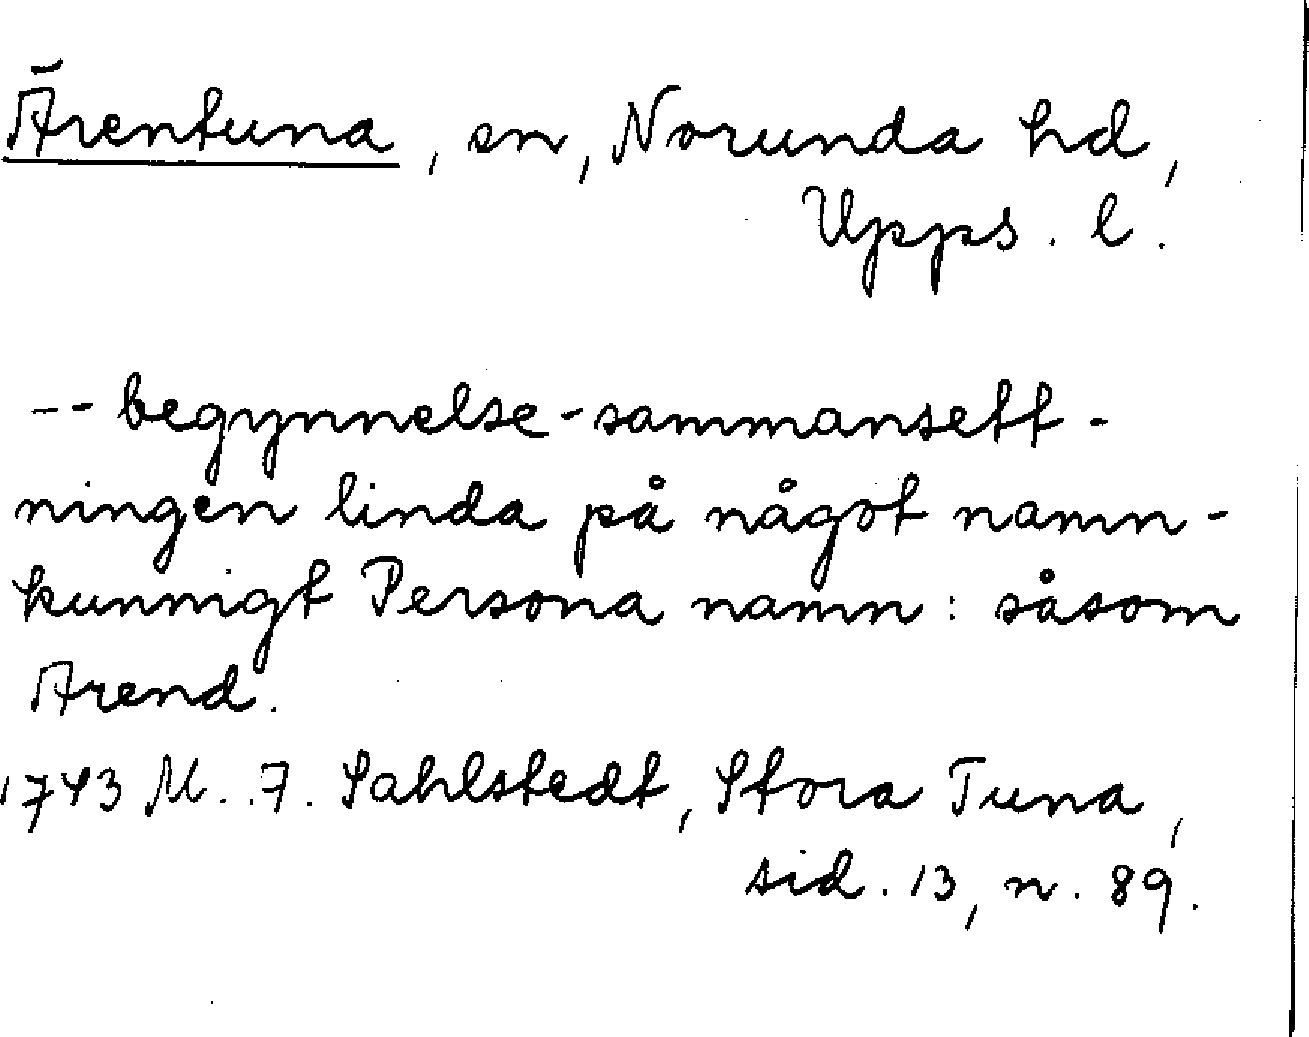 Ärentuna, sn, Norunda hd,
Upps. l.
-- begynnelse-sammansett-
ningen linda på något namn-
kunnigt Persona namn: såsom
Arend.
1743 M. 7. Sahlstedt, Stora Tuna,
sid. 13, n. 89.